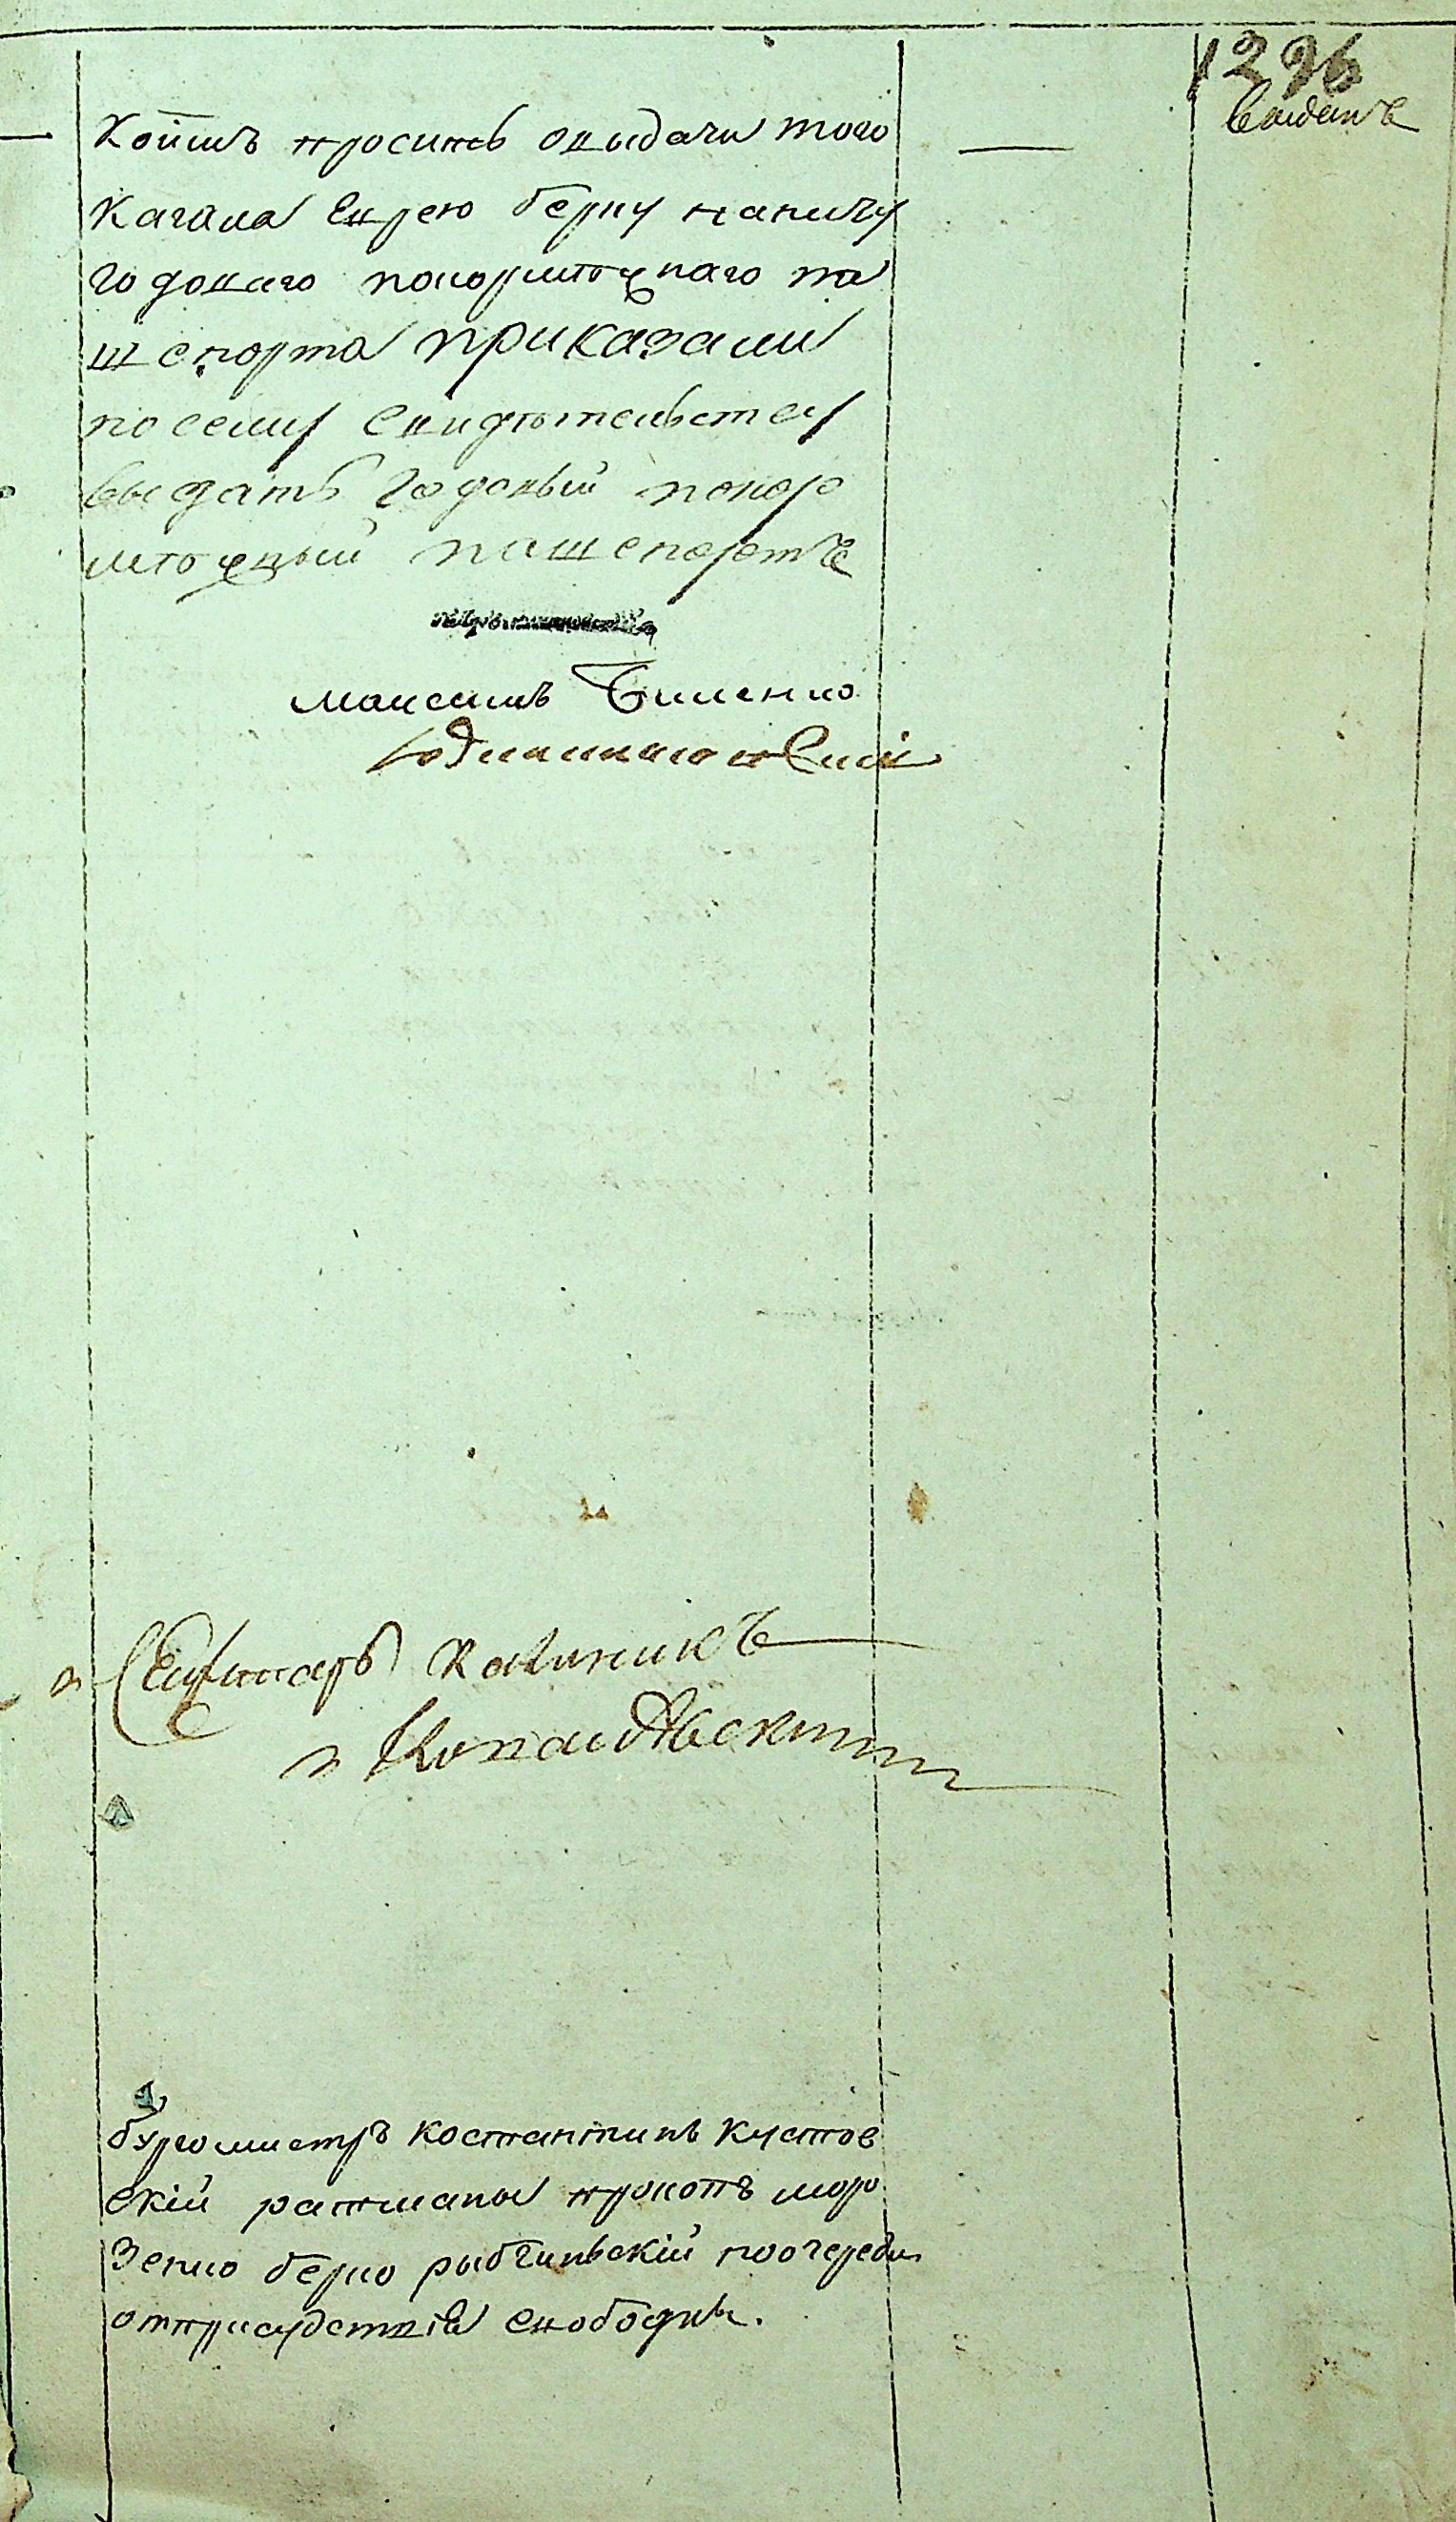 1226
выданъ
Коимъ проситъ овыдачи того
Кагала Еврею берку паничу
Годоваго покормежнаго па
шепорта приказали
по сему свидѣтельству
выдать Годовый покор
межный пашепортъ
Максимъ Биленко
Секретарь Калиникъ
бургомистръ Костантинъ Кустов
скій ратманы прокопъ моро
зенко берко рыбчинскій поочереди
отприсудствія свободны.